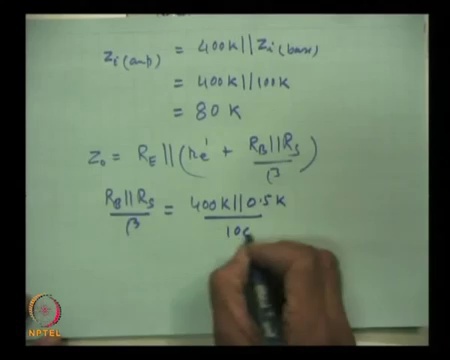 Zi(amp) = 400K || Zi(base)
= 400K || 100K
= 80 K
Zo = RE || (re' + RB || RS / β)
RB || RS / β = 400K || 0.5K / 100
NPTEL